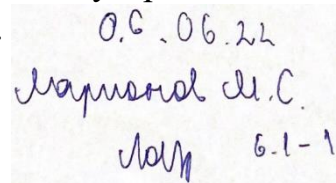 06.06.22
Марионов М.С.
6.1-1